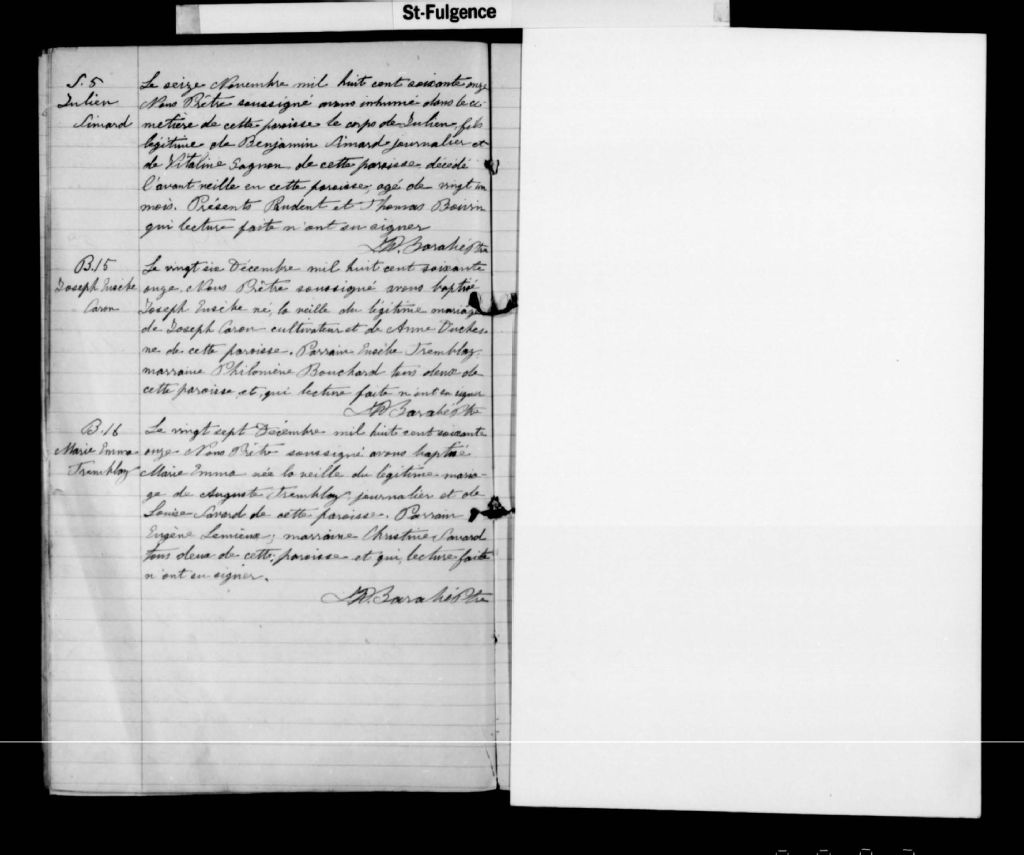 St-Fulgence
S. 5
Julien
Simard
Le seize Novembre mil huit cent soixante onze
Nous Prêtre soussigné avons inhumé dans le ci
metière de cette paroisse le corps de Julien, fils
légitime de Benjamin Simard journalier et
de Vitaline Gagnon de cette paroisse décédé
l'avant veille en cette paroisse, agé de vingt un
mois. Présents Prudent et Thomas Boivin
qui lecture faite n'ont su signer
Ptre
B. 15
Joseph Eusèbe
Caron
Le vingt six Décembre mil huit cent soixante
onze Nous Prêtre soussigné avons baptisé
Joseph Eusèbe né, la veille du légitime mariage
de Joseph Caron cultivateur et de Anne Duches-
ne de cette paroisse. Parrain Eusèbe Tremblay,
marraine Philomène Bouchard tous deux de
cette paroisse, et, qui lecture faite n'ont su signer
Ptre
B. 16
Marie Emma
Tremblay
Le vingt sept Décembre mil huit cent soixante
onze Nous Prêtre soussigné avons baptisé
Marie Emma née la veille du légitime maria-
ge de Auguste Tremblay journalier et de
Louise Savard de cette paroisse. Parrain
Eugène Lemieux, marraine Christine Savard
tous deux de cette paroisse et qui, lecture faite
n'ont su signer.
Ptre